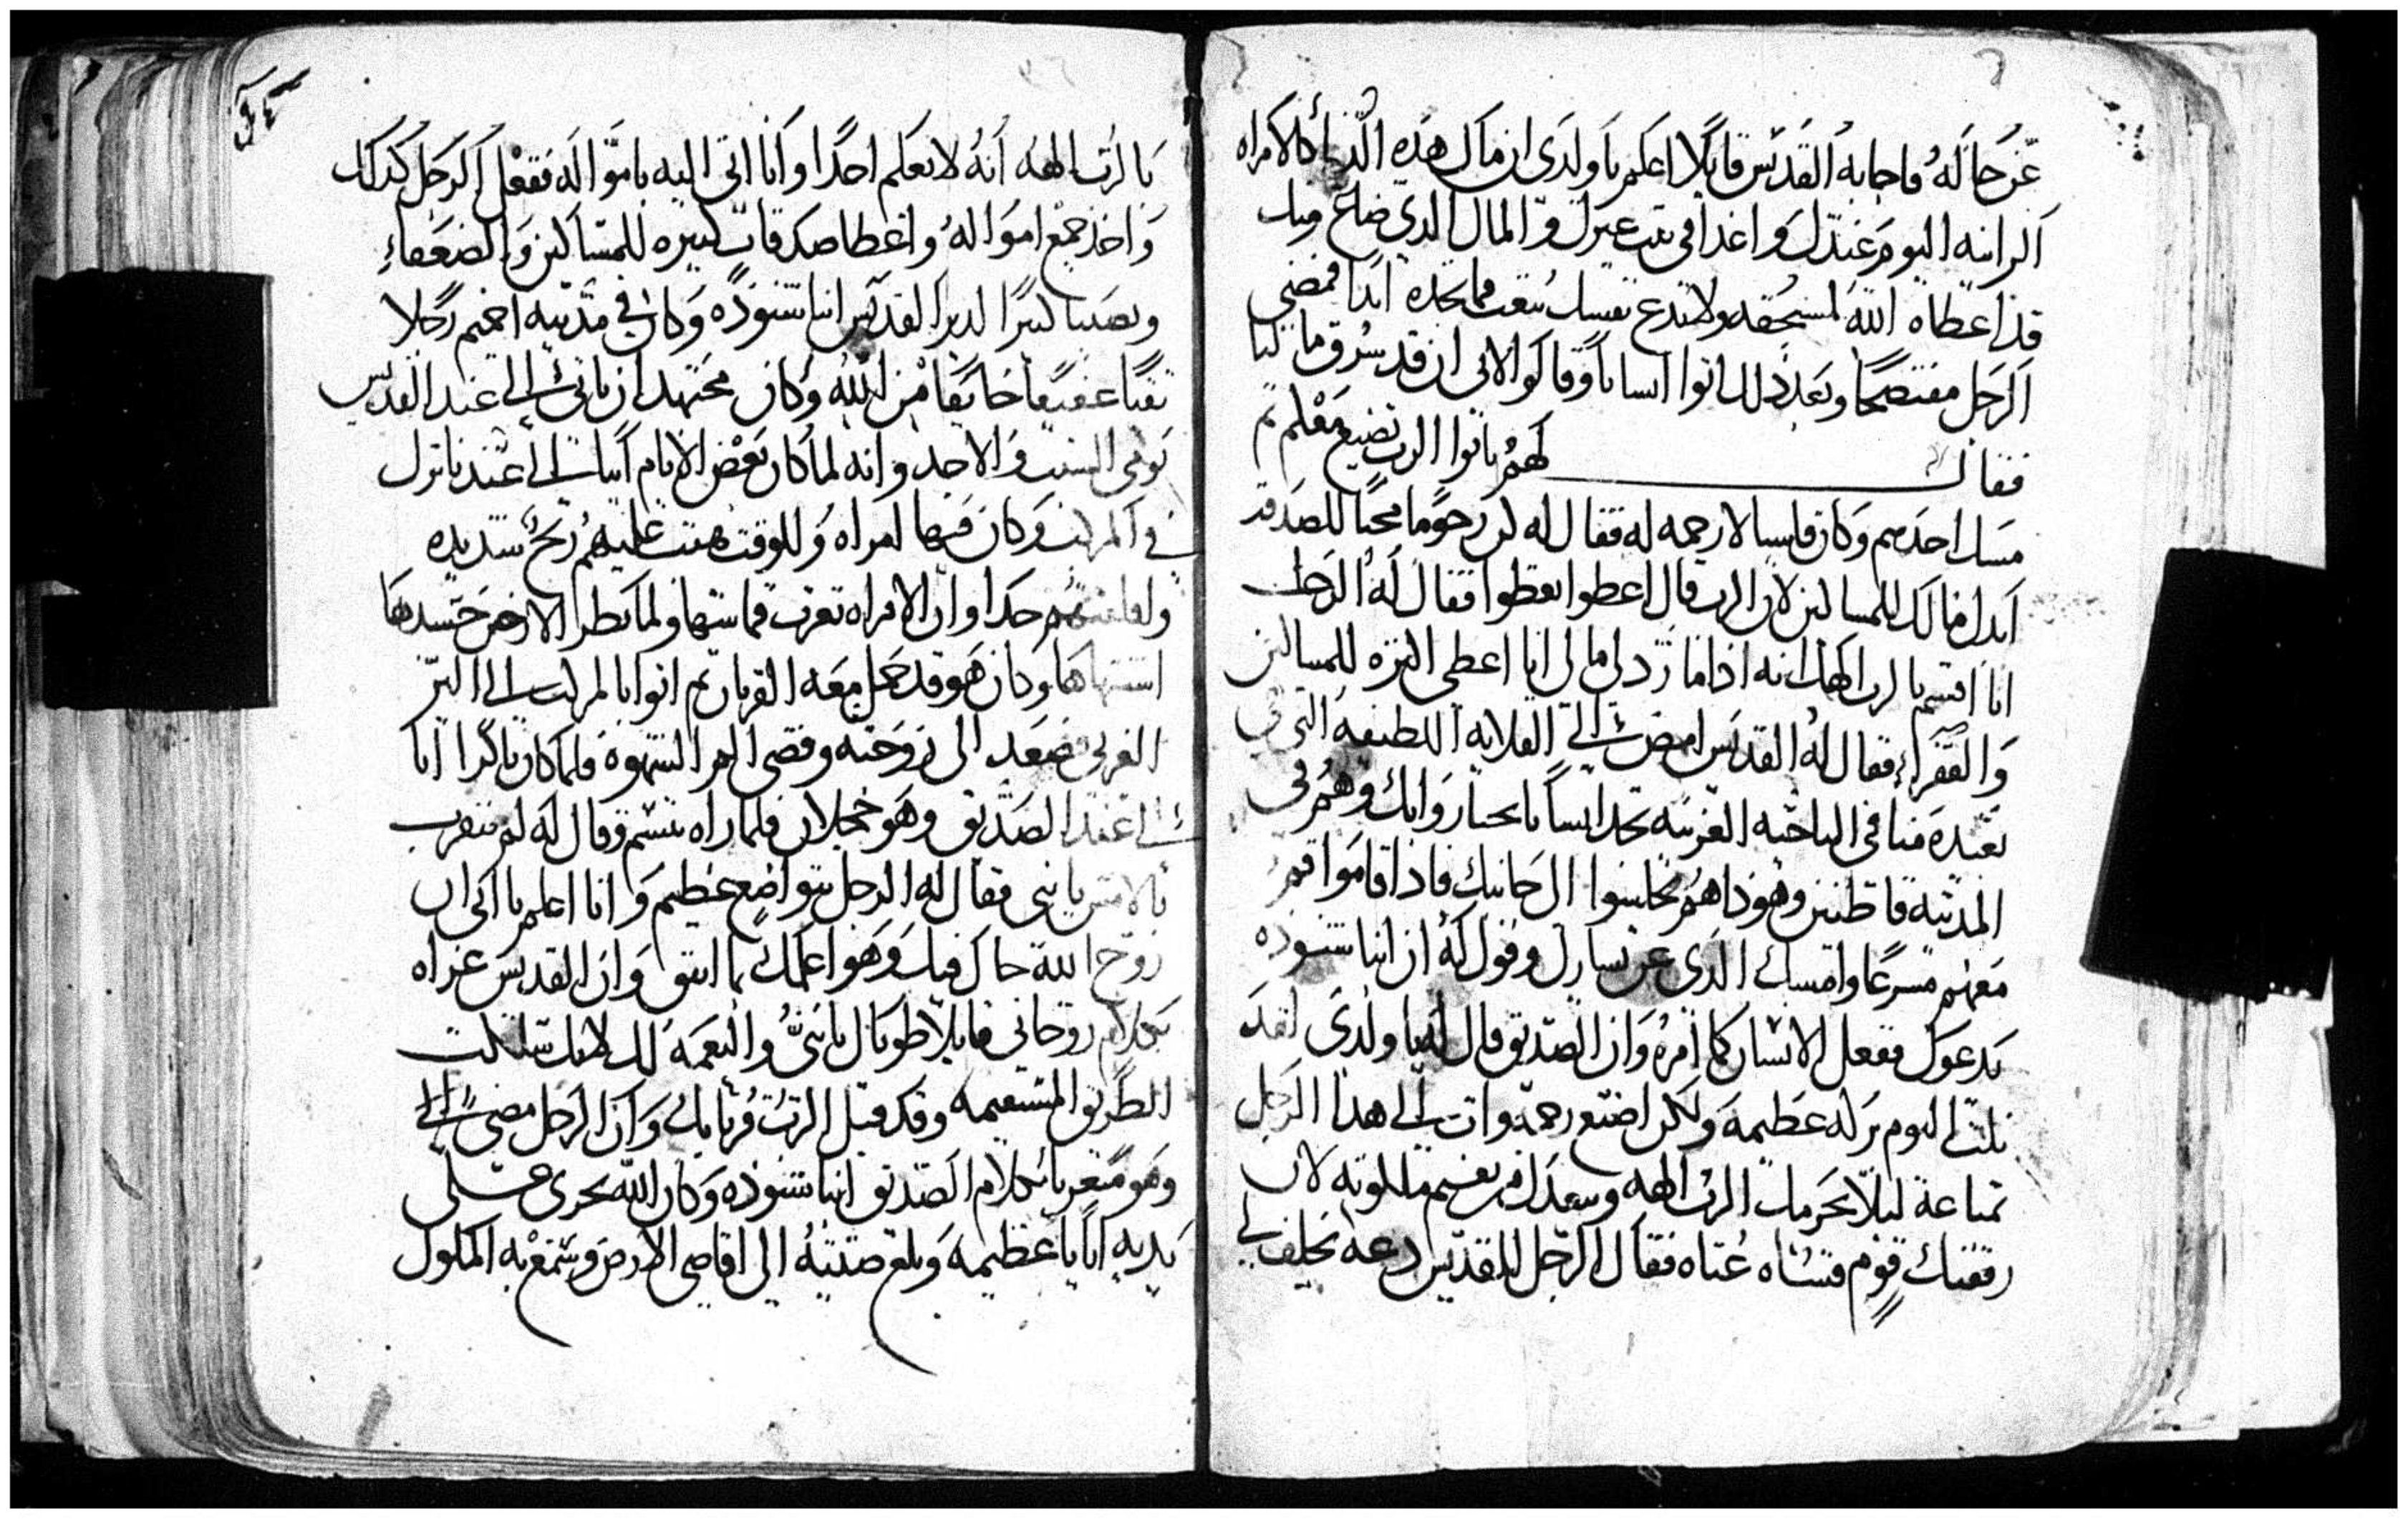 عن حاله فاجابه القديس قايلا اعلم يا ولدى ان مال هذه الدنيا كالامراه
الزانيه اليوم عندك واغدا فى بيت غيرك والمال الدي ضاع منك
قد اعطاه الله لمستحقه ولا تدع نفسك تتعب فما تجده ابدا فمضى
الرجل مفتضحا وبعد ذلك اتوا اناسا وقالوا لابى ان قد سرق مالنا
فقال لهم باتوا الرب تضيع معلم ثم
مسك احدهم وكان قاسيا لا رحمه له فقال له كن رحوما محبا للصدقه
ابدل مالك للمساكين لان الرب قال اعطوا تعطوا فقال له الرجل
انا اقسم بالرب الهك انه اذا ما رد لى مالى انا اعطى اكثره للمساكين
والفقرا فقال له القديس امض الى القلايه اللطيفه التى
بعيده منا فى الناحيه الغربيه تجد اناسا وهم فى
المدينه قاطنين وهوذا هم يجلسوا الى جانبك فاذا قاموا قم
معهم مسرعا وامسك الدى عن يسارك وقول له ان انبا شنوده
يدعوك ففعل الانسان كما امره وان الصديق قال له يا ولدى لقد
نلت اليوم بركه عظيمه ولكن اصنع رحمه وات الى هدا الرجل
لئلا يحرمك الرب الهه لان
رفقتك قوم قساه عتاه فقال الرجل للقديس دعه يحلف لى
بالرب الهه انه لا يعلم احدا وانا اتى اليه بامواله ففعل الرجل كدلك
واخذ جميع امواله واعطا صدقات كثيره للمساكين والضعفاء
ونصيبا كبيرا لدير القديس انبا شنوده وكان فى مدينه اخميم رجلا
تقيا عفيفا خايفا من الله وكان مجتهد ان ياتى الى عند القديس
يومى السبت والاحد وانه لما كان بعض الايام اتيا الى عندنا نزل
فى المركب وكان فيها امراه وللوقت هبت عليهم ريح شديده
جدا وان الامراه تعرت قماشها ولما نظر الارخن جسدها
اشتهاها وكان هو قد حمل معه القربان ثم اتوا بالمركب الى البر
الغربى فصعد الى زوجته وقضى امر الشهوه فلما كان باكرا اتا
الى عند الصديق وهو خجلان فلما راه تبسم وقال له لم تتقرب
بالامس يا بنى فقال له الرجل بتواضع عظيم وانا اعلم يا ابى ان
روح الله حال فيك وهو اعلمك بما اتفق وان القديس عزاه
بكلام روحانى قايلا طوباك يا بنى والنعمه لك لانك سلكت
الطريق المستقيمه وقد قبل الرب قربانك وان الرجل مضى الى
وهو متعزيا بكلام الصديق انبا شنوده وكان الله يجرى على
يديه اياتا عظيمه وبلغ صيته الى اقاصى الارض وسمع به الملوك